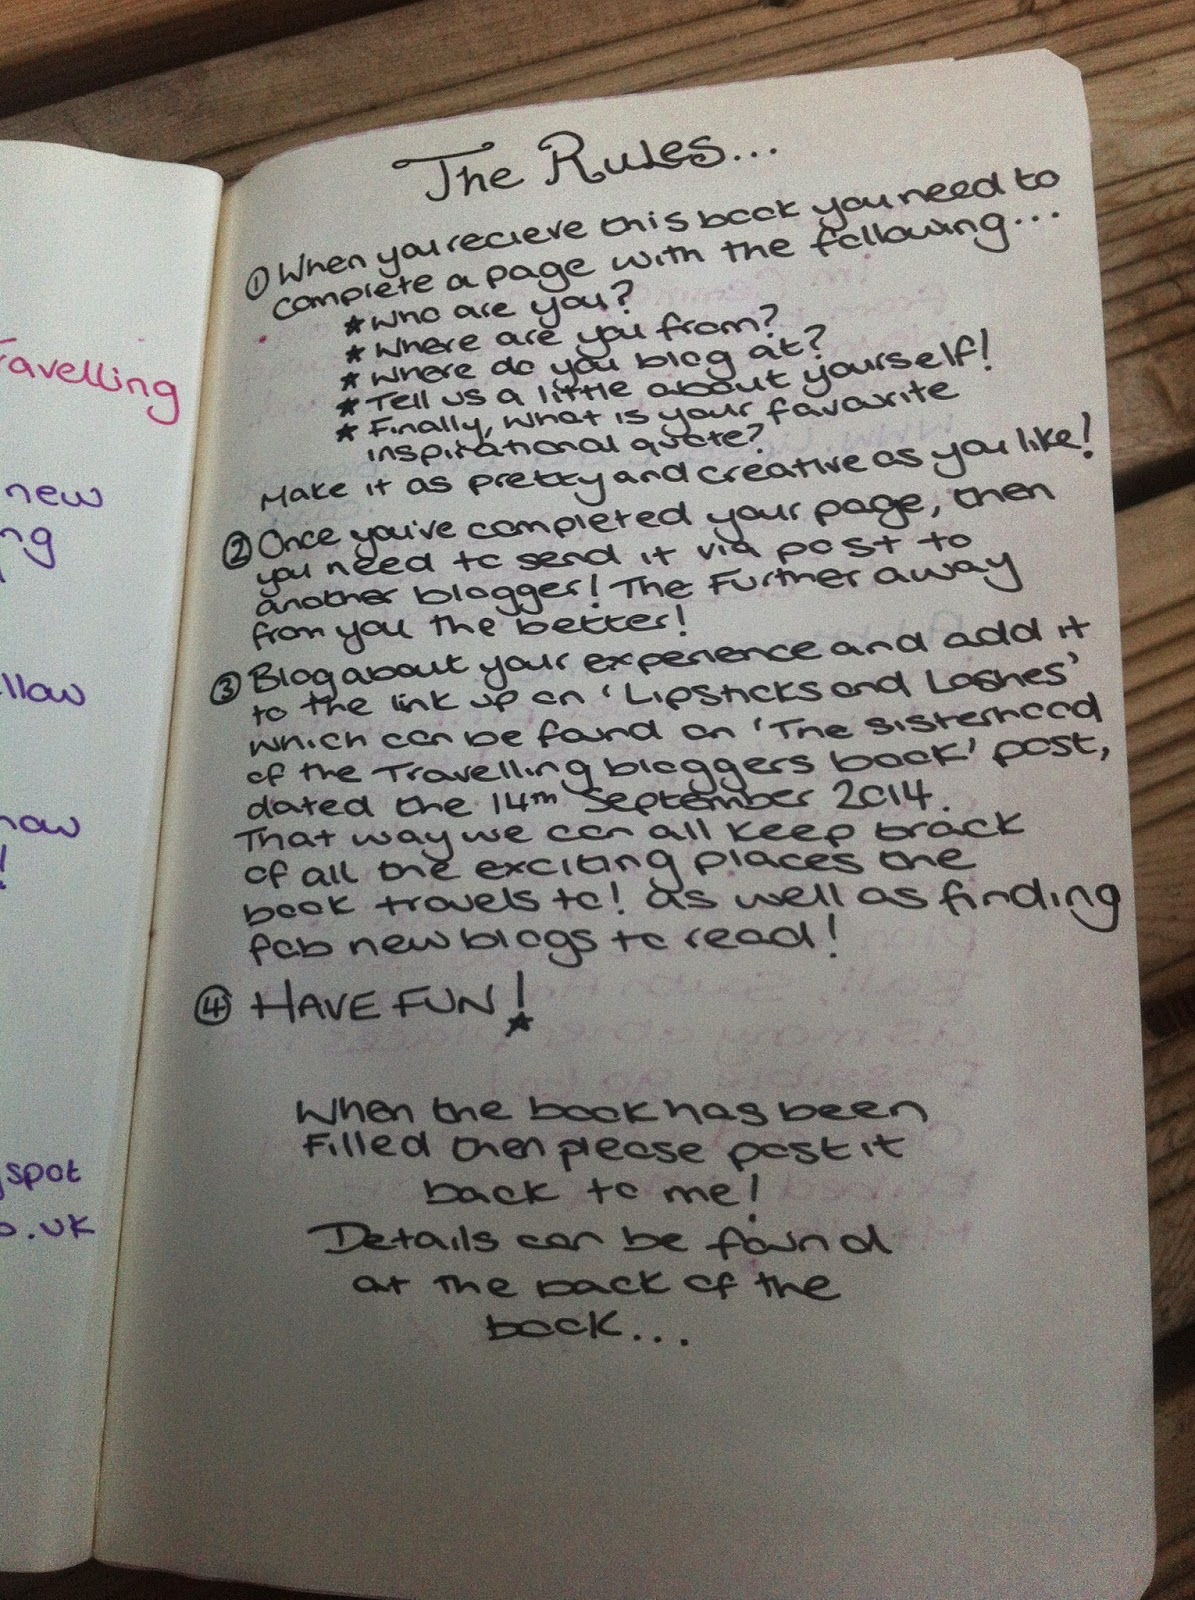 Travelling
new
ng
llow
now
!
spot
o.uk
The Rules...
① When you recieve this book you need to
complete a page with the following...
* Who are you?
* Where are you from?
* Where do you blog at?
* Tell us a little about yourself!
* Finally, what is your favourite
inspirational quote?
Make it as pretty and creative as you like!
② Once you've completed your page, then
you need to send it via post to
another blogger! The Further away
from you the better!
③ Blog about your experience and add it
to the link up on 'Lipsticks and Lashes'
which can be found on 'The Sisterhood
of the Travelling bloggers book' post,
dated the 14th September 2014.
That way we can all keep track
of all the exciting places the
book travels to! as well as finding
fab new blogs to read!
④ HAVE FUN!
When the book has been
filled then please post it
back to me!
Details can be found
at the back of the
book...